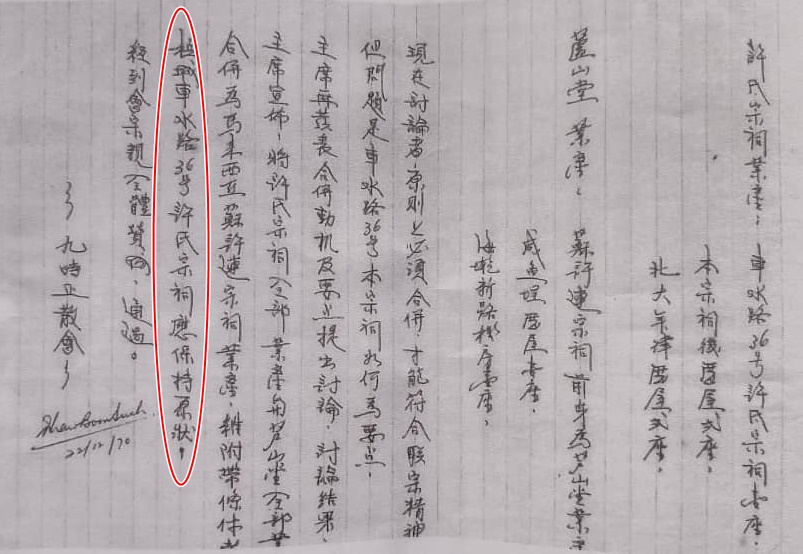 許氏宗祠業產：車水路36号許氏宗祠壹座，
本宗祠後厝屋弍座，
北大年律厝屋弍座，
蘆山堂業產：蘇許連宗祠前身為芦山堂業主
咸魚埕厝屋壹座，
海墘新路機房壹座，
現在討論者原則上必須合併，才能符合聯宗精神
但問題是車水路36号本宗祠如何為要点，
主席再發表合併動机及要点提出討論，討論結果，
主席宣佈，將許氏宗祠全部業產與芦山堂全部業
合併為馬來西亞蘇許連宗祠業產，附帶條件
檳城車水路36号許氏宗祠應保持原狀，
經到會宗親全體贊同，通過。
九時正散會
22/12/70